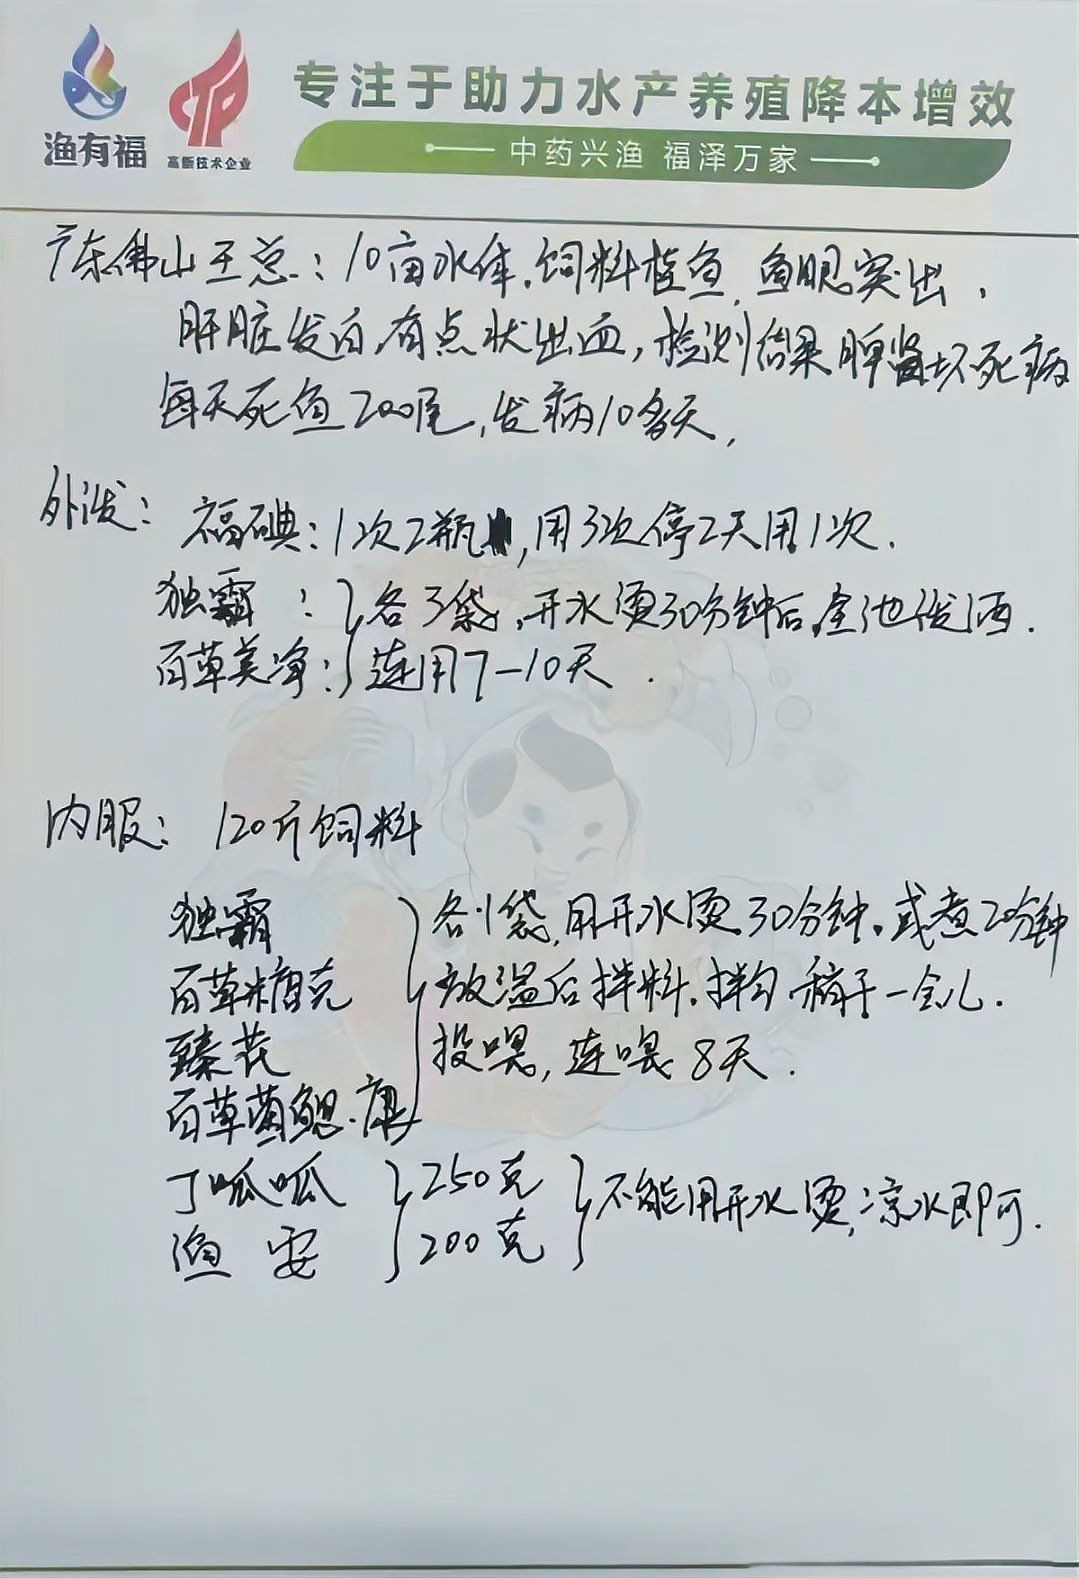 渔有福
高新技术企业
专注于助力水产养殖降本增效
中药兴渔 福泽万家
广东佛山王总：10亩水体，饲料桂鱼，鱼眼突出，
肝脏发白，有点状出血，检测结果脾肾坏死病
每天死鱼200尾，发病10多天，
外泼：福碘：1次2瓶，用3次停2天用1次．
独霸：｝各3袋，开水烫30分钟后，全池泼洒．
百草美净：｝连用7－10天．
内服：120斤饲料
独霸 各1袋，用开水烫30分钟，或煮20分钟
百草瘟克 放温后拌料，拌匀稍干一会儿．
臻花 投喂，连喂8天．
百草菌鳃康
丁呱呱 ｝250克 ｝不能用开水烫，凉水即可．
渔安 ｝200克